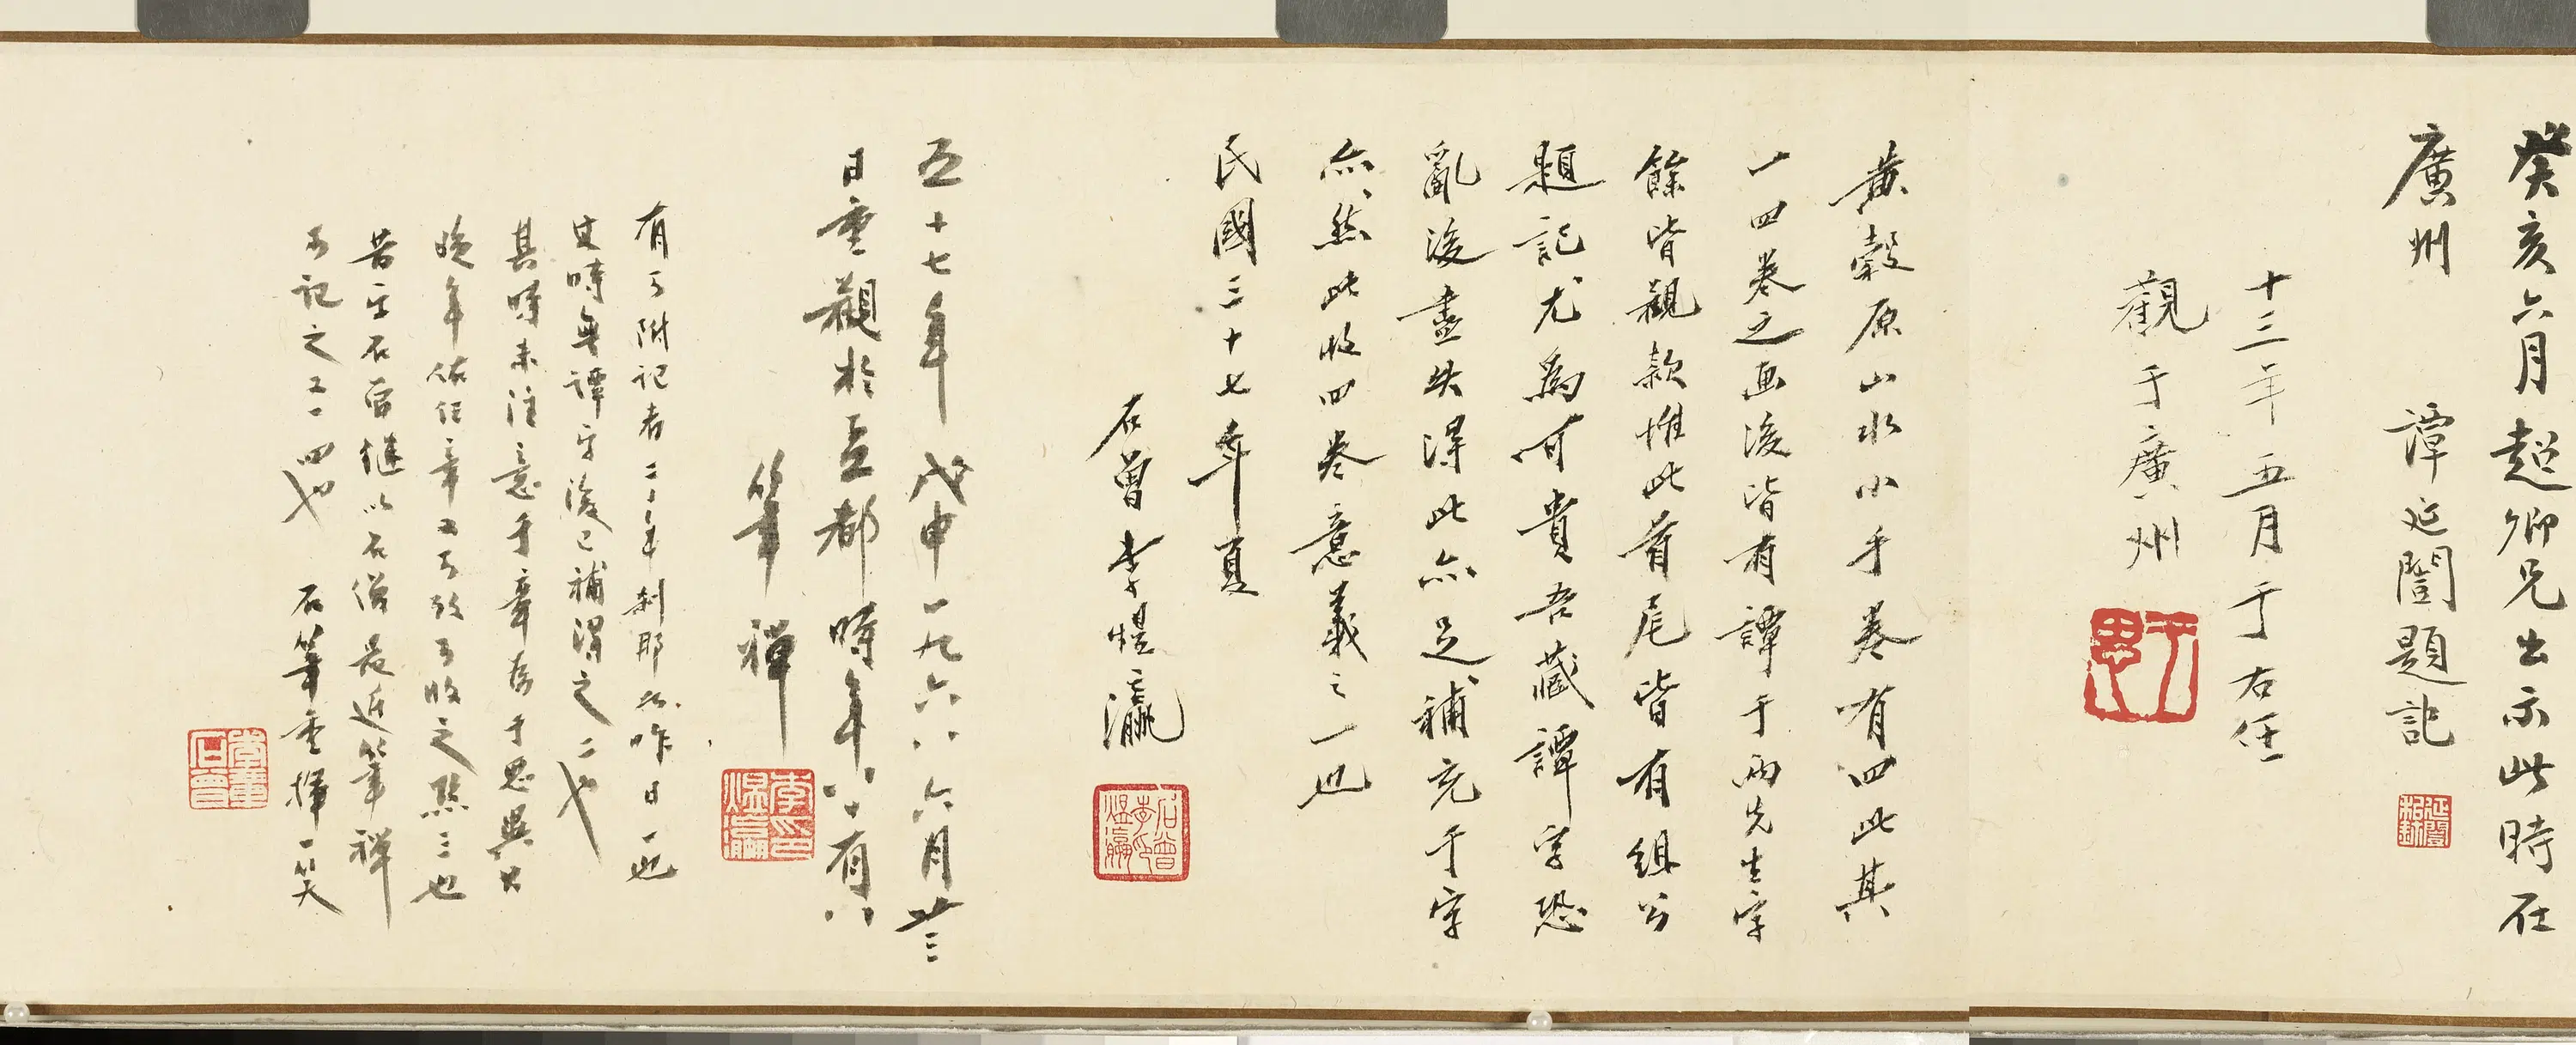 癸亥六月超卿兄出示此時在
廣州 譚延闓題記
延闓
十三年五月于右任
觀于廣州
黃穀原山水小手卷有四此其
一四卷之画後皆有譚于兩先生字
餘皆觀款惟此首尾皆有組公
題記尤為可貴吾藏譚字恐
亂後盡失得此亦足補充于字
亦然此收四卷意義之一也
民國三十七年夏
石曾李煜瀛
石曾李煜瀛
五十七年戊申一九六八六月廿三
日重觀於臺都時年八十有八
筆禪
李煜瀛印
有可附記者二十年剎那如昨日一也
其時未注意于章存于思與大
昔字石曾繼以石僧最近筆禪
可記之又一四也 石筆重揮一笑
李石曾